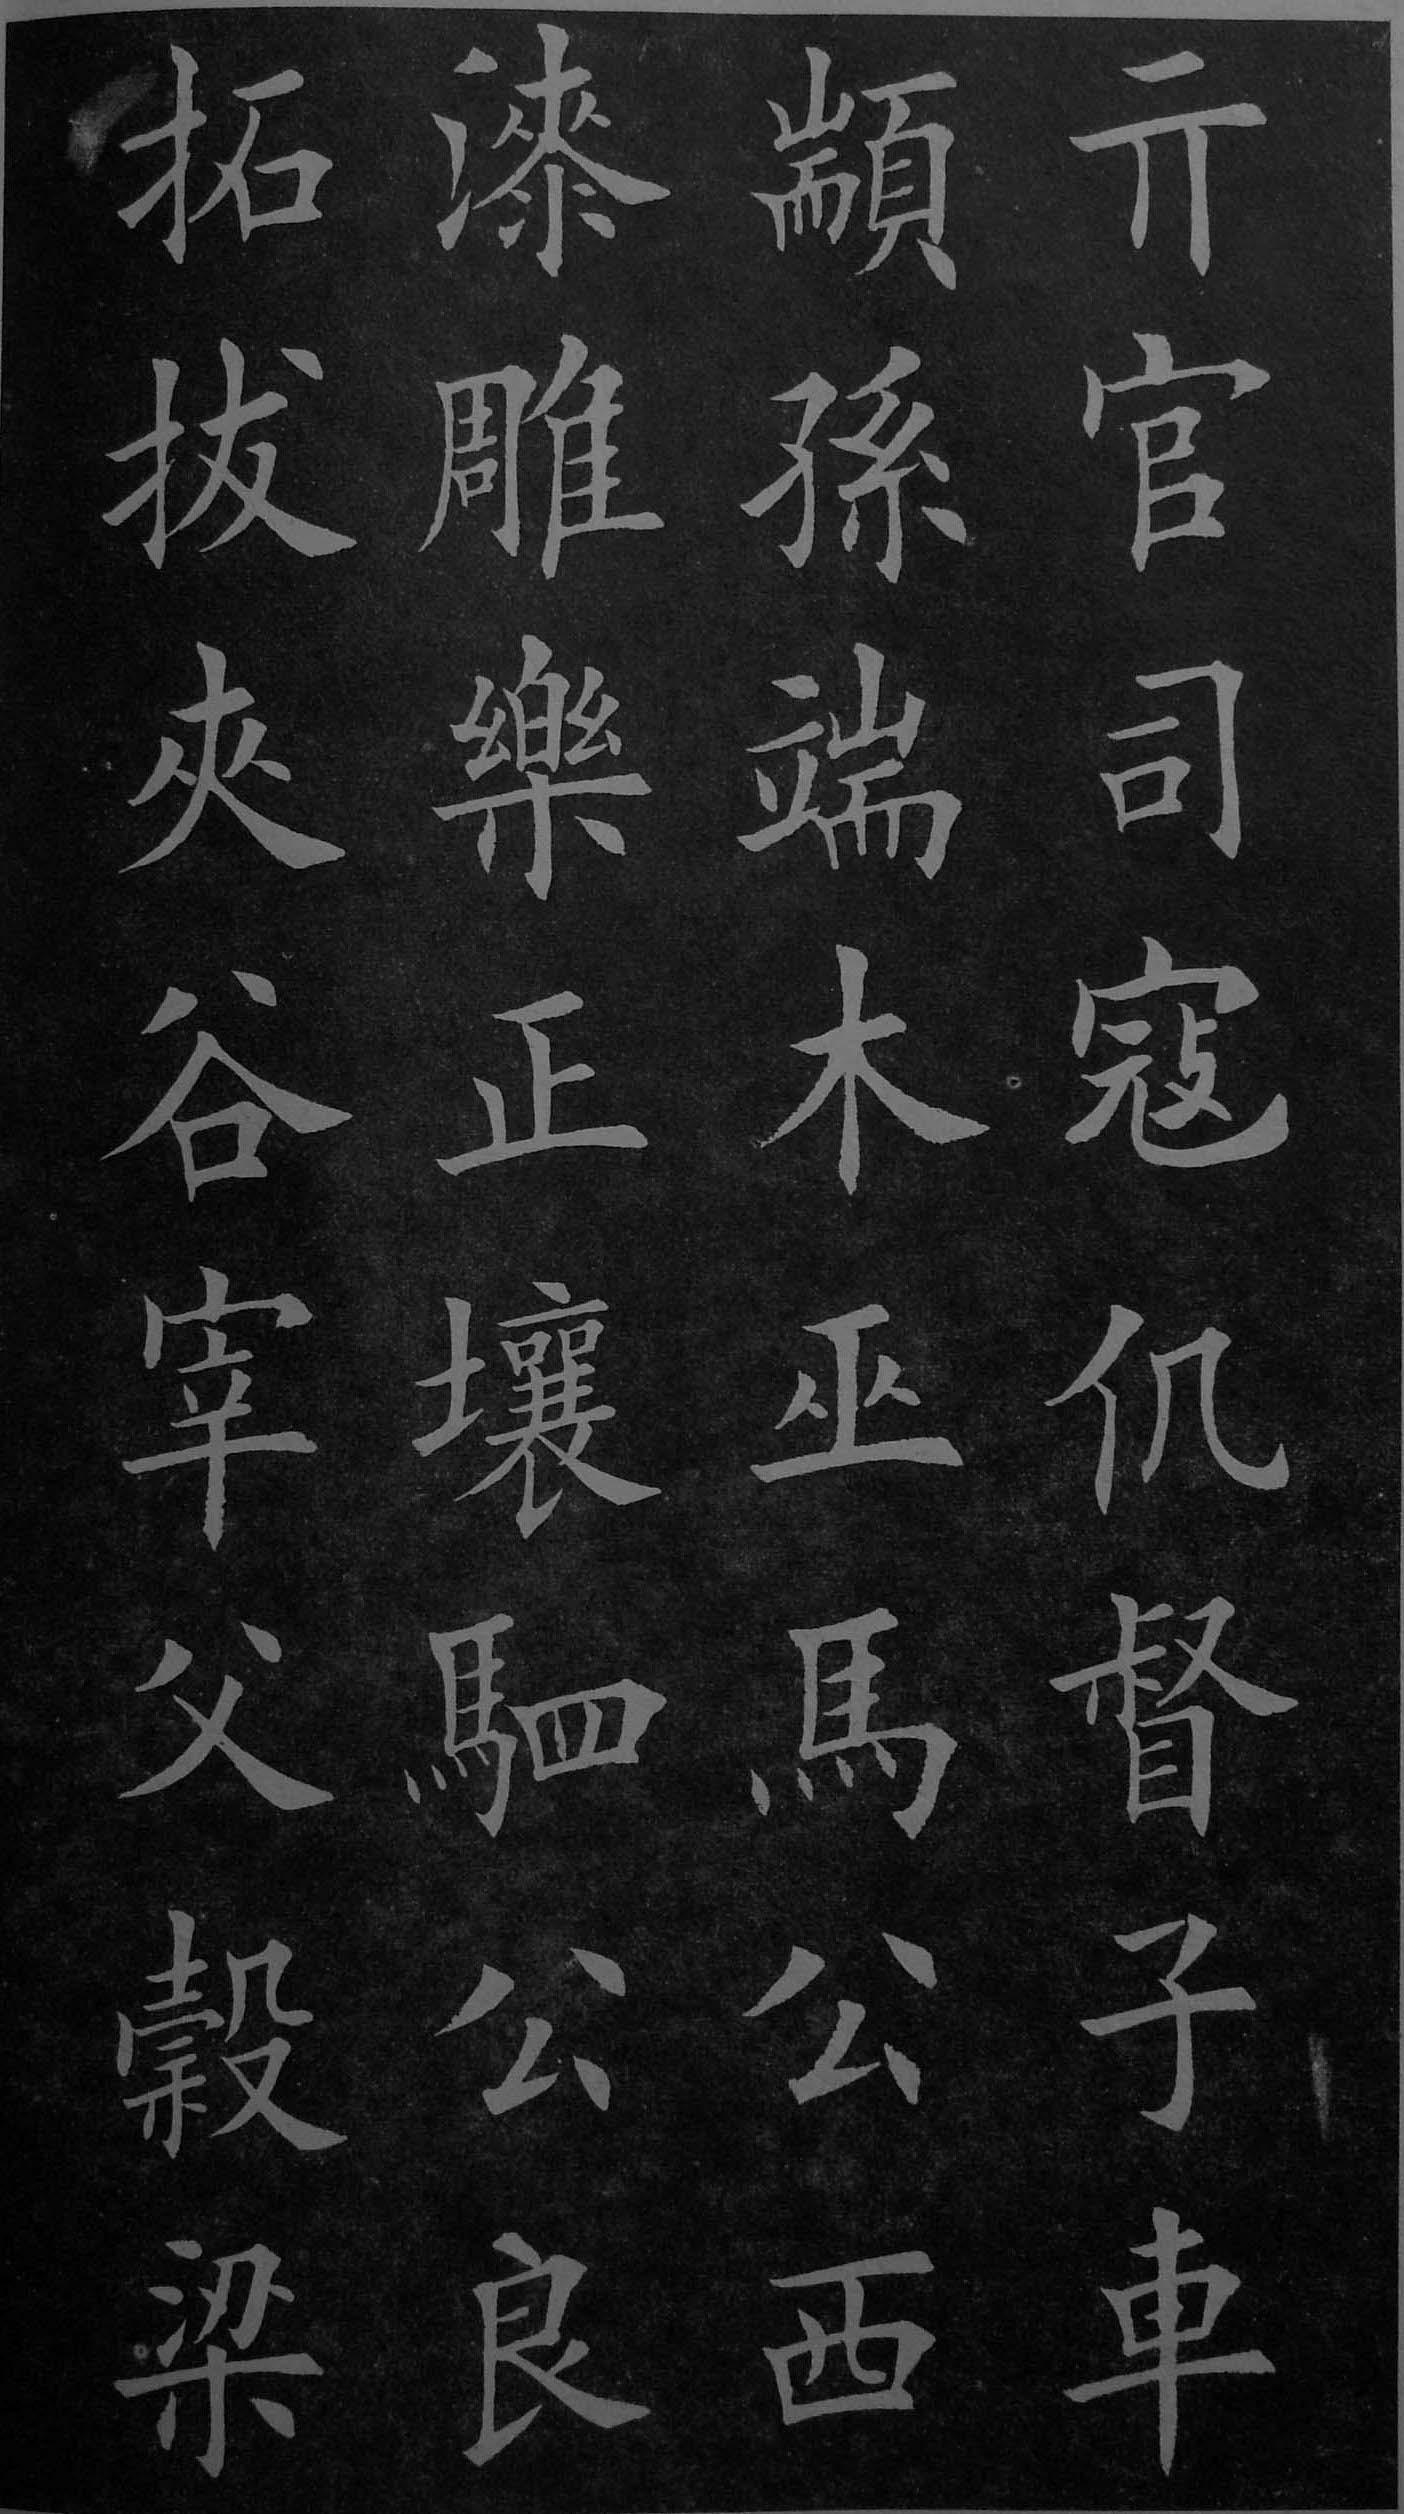 亓官司寇仉督子車
顓孫端木巫馬公西
漆雕樂正壤駟公良
拓拔夾谷宰父穀梁